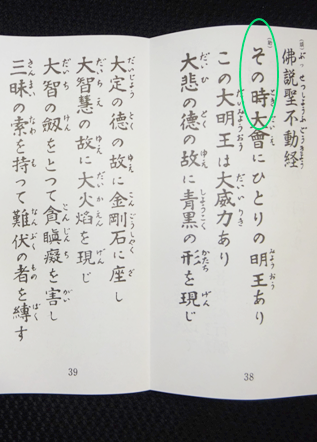 佛説聖不動経
その時大會にひとりの明王あり
この大明王は大威力あり
大悲の徳の故に青黒の形を現じ
大定の徳の故に金剛石に座し
大智慧の故に大火焰を現じ
大智の劔をとつて貪瞋癡を害し
三昧の索を持つて難伏の者を縛す
38
39